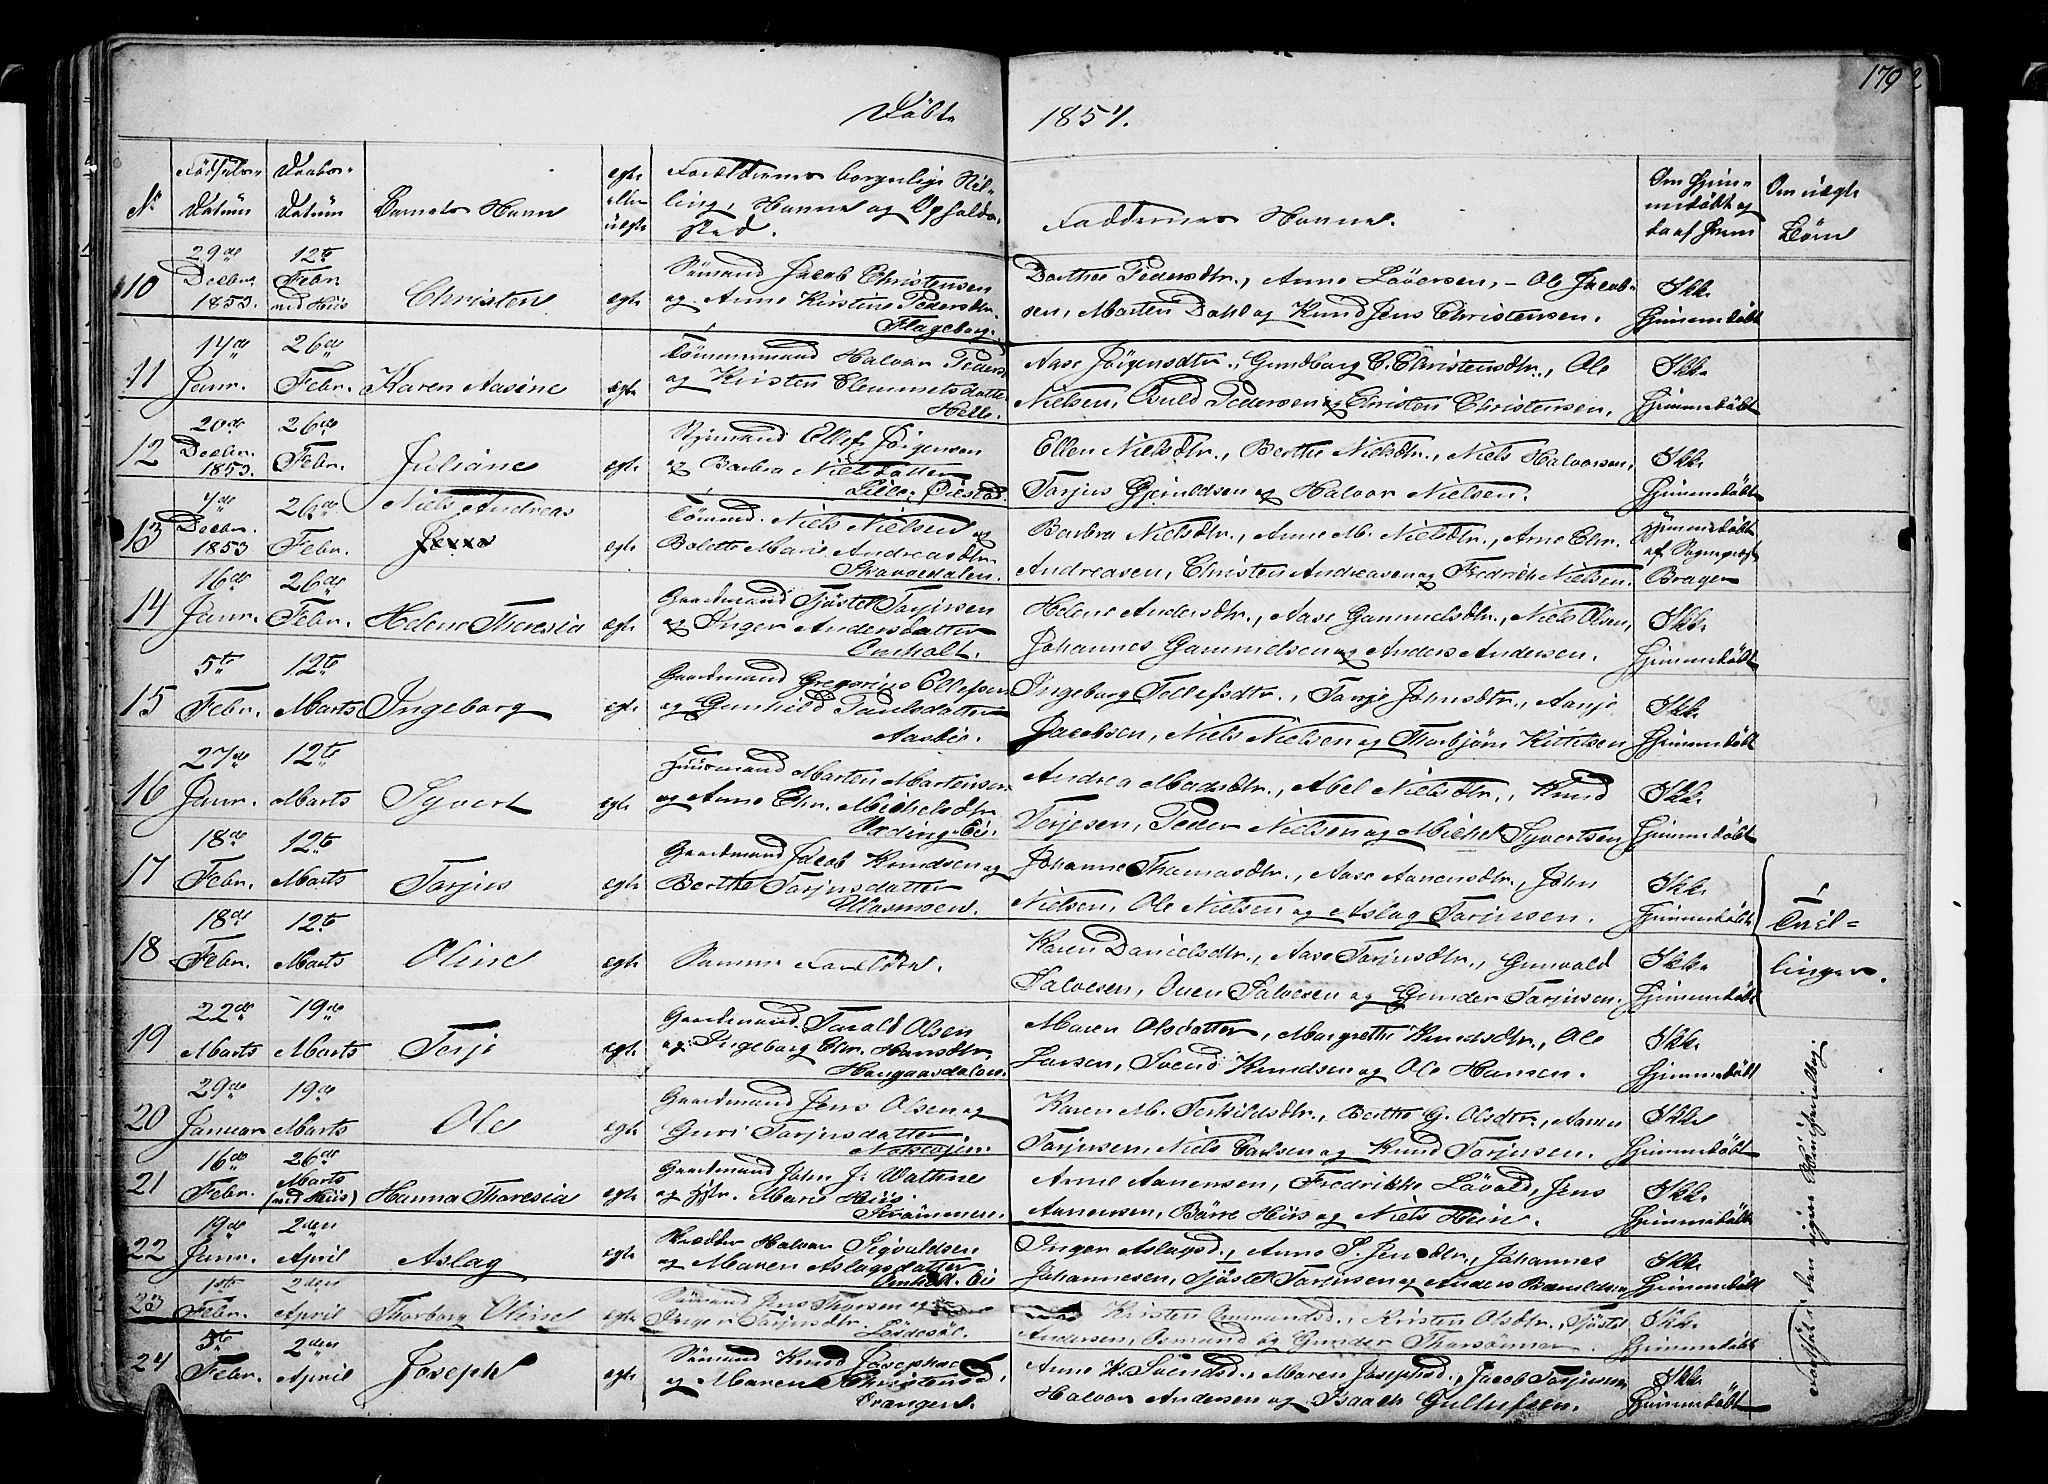 179
Döbte 1854.
No
Födsels-
Datum
Daabs-
Datum
Barnets Navn
egte
eller
uegte
Forældrenes borgerlige Stil-
ling, Navne og Opholds-
sted.
Faddernes Navne.
Om Hjem-
medöbt og
da af hvem
Om uægte
Börn
10
29de
Decbr.
1853.
12te
Febr.
ved Hiis
Christen
egte
Sömand Jacob Christensen
og Anne Kirstine Pedersdtr.
Flageborg.
Dorthee Pedersdtr., Anne Löversen, - Ole Jacob-
sen, Morten Dahl og Knud Jens Christensen.
Ikke
hjemmedöbt
11
14de
Janr.
26de
Febr.
Karen Aasine
egte
Tömmermand Halvor Peders.
og Kirsten Clemmetsdatter
Helle.
Aase Jörgensdtr., Gundborg C. Christensdtr., Ole
Nielsen, Osuld Pedersen og Christen Christensen.
Ikke
hjemmedöbt
12
20de
Decbr.
1853.
26de
Febr.
Juliane
egte
Ellef Jörgensen
og Barbra Nielsdatter
Lille Öiestad.
Ellen Nielsdtr., Berthe Nielsdtr., Niels Halvorsen,
Tarjus Gjeruldsen og Halvor Nielsen.
Ikke
hjemmedöbt
13
7de
Decbr.
1853
26de
Febr.
Niels Andreas
egte
Tömmd. Niels Nielsen og
Bolette Marie Andreasdtr.
Skavgedalen.
Barbra Nielsdtr., Anne M. Nielsdtr., Arne Chr.
Andreasen, Christen Andreasen og Fredrich Nielsen.
Hjemmedöbt
af Sognepræst
Brager
14
16de
Janr.
26de
Febr.
Helene Theresia
egte
Gaardmand Tjöstel Tarjusen
og Inger Andersdatter
Omholt.
Helene Andersdtr., Aase Gammelsdtr., Niels Olsen,
Johannes Gammelsen og Anders Andersen.
Ikke
hjemmedöbt
15
5te
Febr.
12te
Marts
Ingeborg
egte
Gaardmand Gregorius Ellefsen
og Gunhild Paulsdatter
Aasbie.
Ingeborg Tellefsdtr., Tarje Johnsdtr., Aanje
Jacobsen, Niels Nielsen og Thorbjörn Kittelsen
Ikke
hjemmedöbt
16
27de
Janr.
12te
Marts
Syvert
egte
Huusmand Morten Mortensen
og Anne Chr. Michelsdtr.
Væding-Eie.
Andrea Madsdtr., Abel Nielsdtr., Knud
Terjesen, Peder Nielsen og Michel Syvertsen
Ikke
hjemmedöbt
17
18de
Febr.
12te
Marts
Tarjus
egte
Gaardmand Jacob Knudsen og
Berthe Tarjusdatter
Ulvasmoen.
Johanne Thomasdtr., Aase Aanensdtr., John
Nielsen, Ole Nielsen og Aslag Tarjusen.
Ikke
hjemmedöbt
Tvil-
linger.
18
18de
Febr.
12te
Marts
Oline
egte
Samme Forældre.
Karen Danielsdtr., Aase Tarjusdtr., Gunvald
Salvesen, Ouen Salvesen og Gunder Tarjusen.
Ikke
hjemmedöbt
19
22de
Marts
19de
Marts
Terje
egte
Gaardmand Tarald Olsen
og Ingeborg Chr. Hansdtr.
Haugaasdalen.
Maren Olsdatter, Margrethe Knudsdtr., Ole
Larsen, Svend Knudsen og Ole Hansen.
Ikke
hjemmedöbt
20
29de
Januar
19de
Marts
Ole
egte
Gaardmand Jens Olsen og
Guri Tarjusdatter
Karen M. Terkildsdtr., Berthe G. Olsdtr., Aanen
Tarjusen, Niels Carlsen og Knud Tarjusen.
Ikke
hjemmedöbt
21
16de
Febr.
26de
Marts
(ved Hiis)
Hanna Theresia
egte
Gaardmand John J. Walthne
og Hstr. Marie Hiis
Strömmen.
Arne Aanensen, Fredrikke Lövold, Jens
Aanensen, Börre Hiis og Niels Hiin.
Ikke
hjemmedöbt
22
19de
Janr.
2den
April
Aslag
egte
Skrædder Halvor Sigvaldsen
og Maren Aslagsdatter
Omholt Eie
Inger Aslagsd., Anne S. Jensdtr., Johannes
Johannesen, Tjöstel Tarjusen og Anders
Ikke
hjemmedöbt
23
1ste
Febr.
2den
April
Thorborg Oline
egte
Sömand Jens Thorsen og
Inger Tarjusdtr. Lödesöl.
Kirsten Osmundsd., Kirsten Olsdtr., Tjöstel
Andersen, Osmund og Gunder Thorsönner.
Ikke
hjemmedöbt
24
5te
Febr.
2den
April
Joseph
egte
Sömand Knud Josephsen
og Maren Christensd.
Vrangen.
Anne K. Svendsd., Maren Josephsd., Jacob Tarjusen,
Halvor Andersen og Isaach Gullufsen.
Ikke
hjemmedöbt